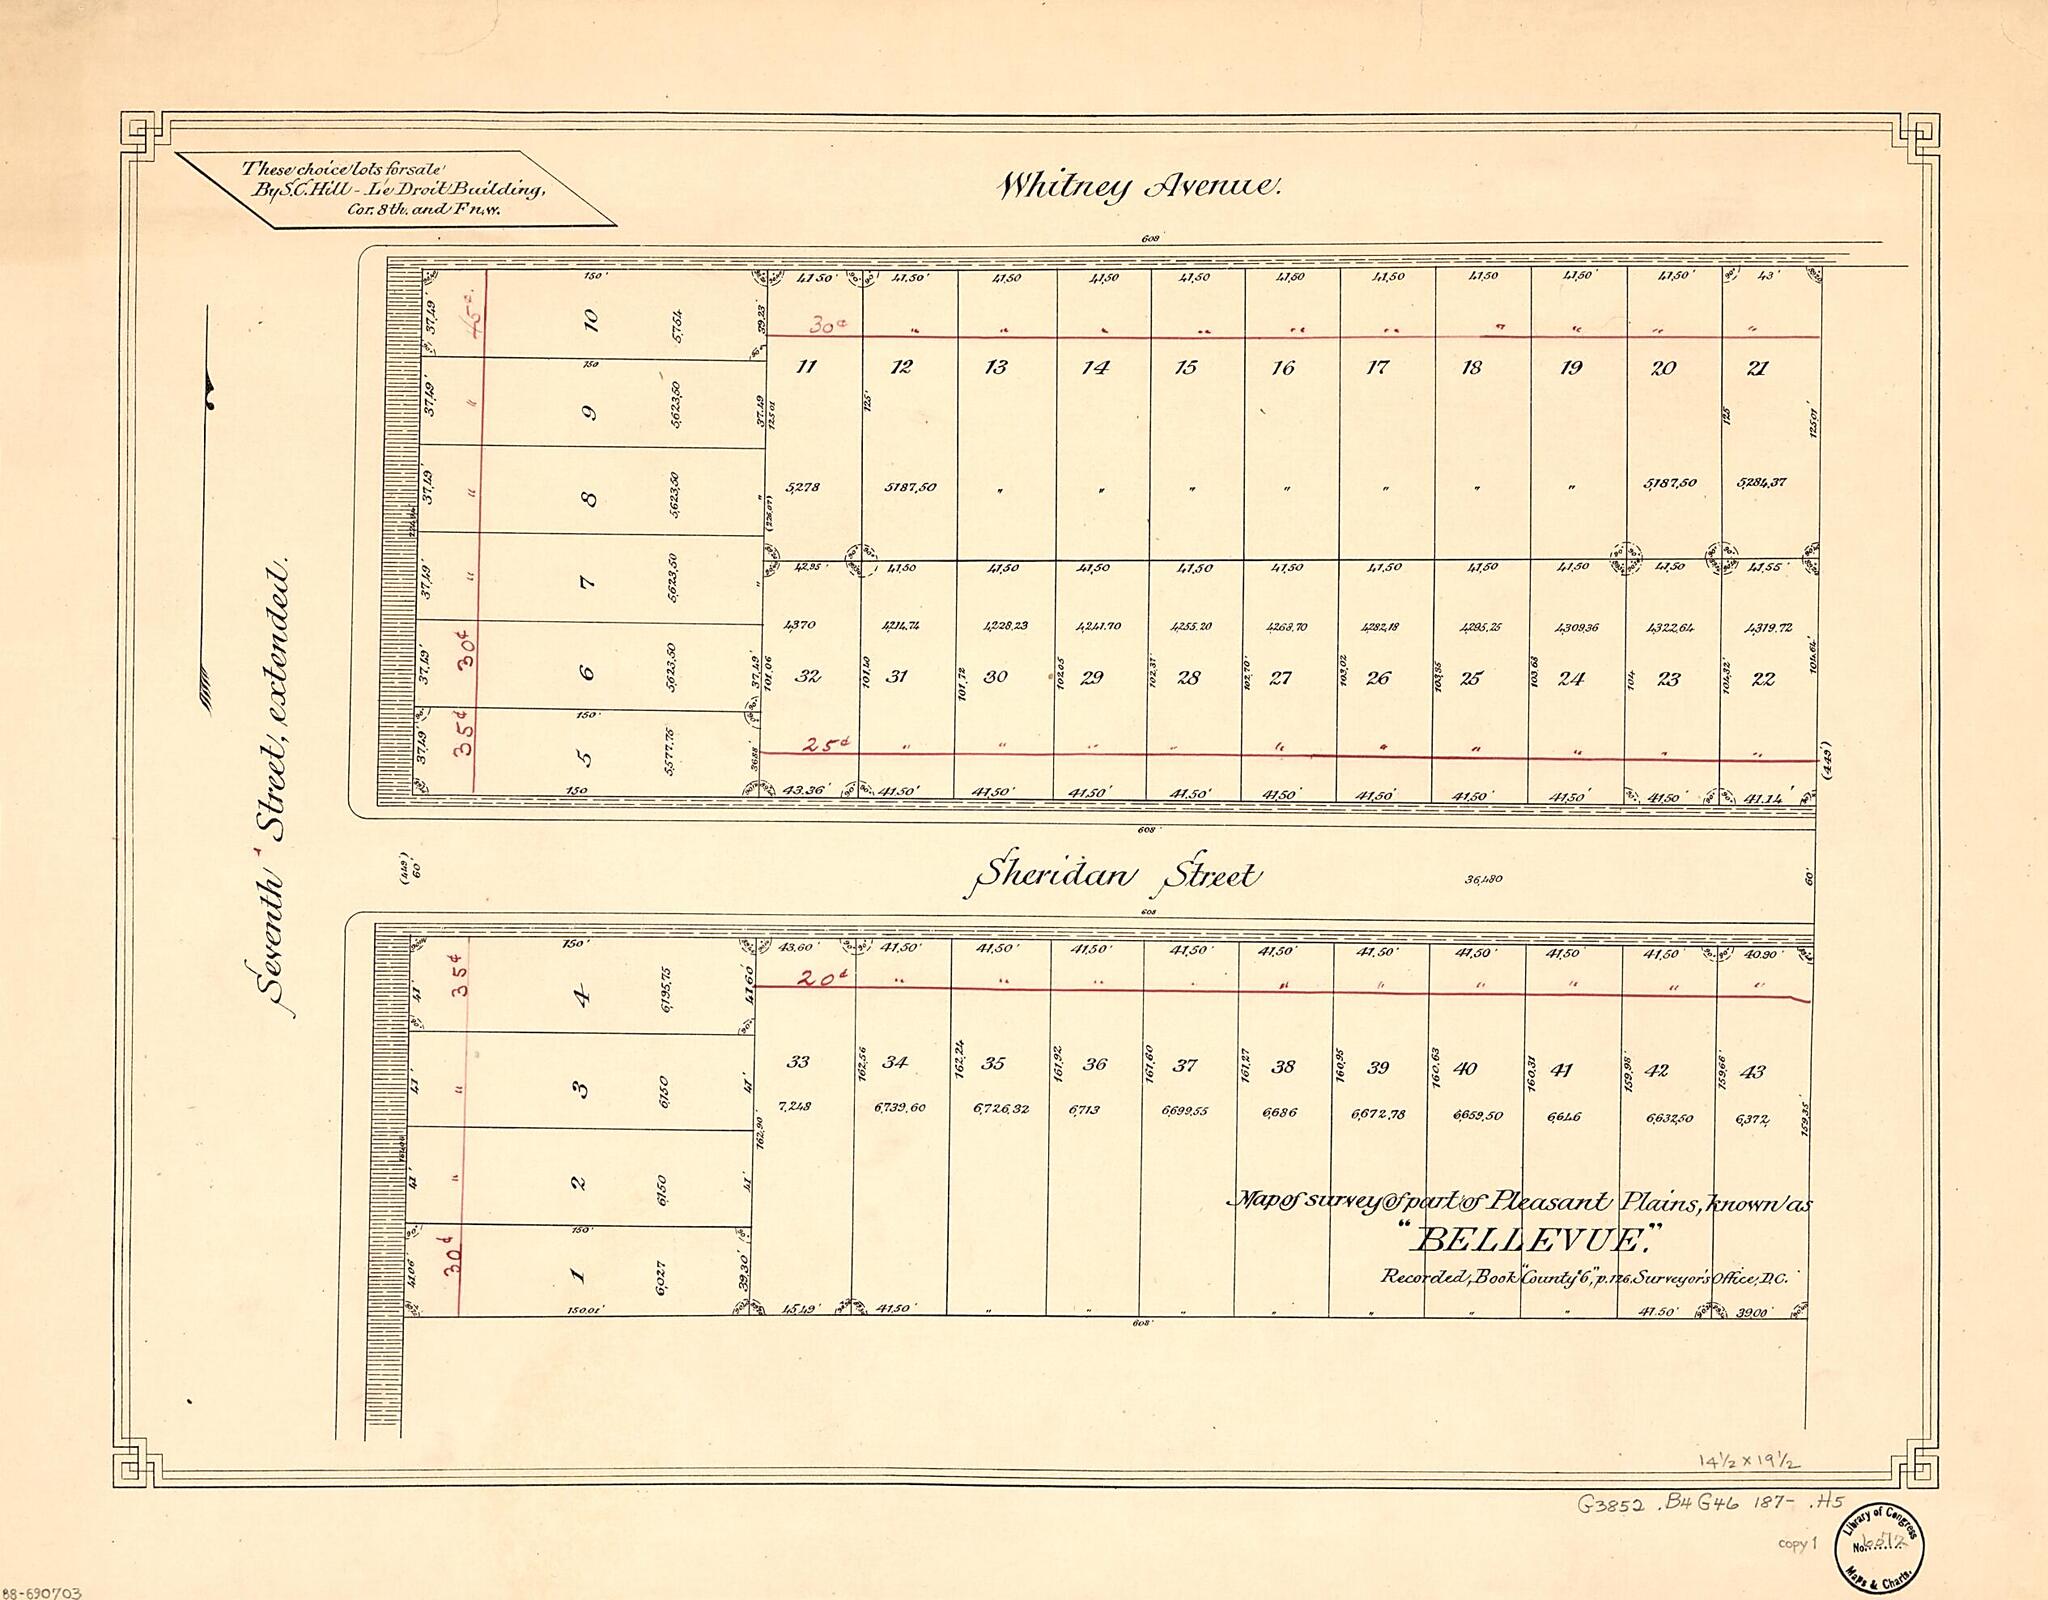 These choice lots for sale
By S.C. Hill - Le Droit Building,
Cor. 8th. and F n.w.
Whitney Avenue.
608
150' 41.50' 41,50' 41,50 41,50 41,50 41,50 41,50 41,50 41,50' 41,50' 43'
37,49' 45¢. 10 5,764 39.23' 30¢ " " " " " " " " " "
150
11 12 13 14 15 16 17 18 19 20 21
37,49' " 9 5,623,50 37.49 125.01 125' 125 125,01'
37,49' " 8 5,623,50 " (226,07) 5,278 5187,50 " " " " " " " 5,187,50 5,284,37
37,49' " 7 5,623,50 " 42.95' 41,50 41,50 41,50 41,50 41,50 41,50 41,50 41,50 41,50 41,55'
4,370 4,214.74 4,228,23 4,241.70 4,255.20 4,268,70 4,282,18 4,295,25 4,309,36 4,322,64 4,319.72
37,49' 30¢ 6 5,623,50 37,49' 101,06 32 101,40 31 101,72 30 102,05 29 102,37' 28 102,70' 27 103,02 26 103,35 25 103,68 24 104 23 104,32' 22 104,64'
150'
37,49' 35¢ 5 5,577.75 36.88' 25¢ " " " " " " " " " "
(449')
150 43.36' 41.50' 41,50' 41,50' 41,50' 41,50' 41,50' 41,50' 41,50' 41,50' 41.14'
608'
Seventh Street, extended.
(449') 60'
Sheridan Street
36,480
60'
608
150' 43.60' 41,50' 41,50' 41,50' 41,50' 41,50' 41,50' 41,50' 41,50' 41,50' 40.90'
41' 35¢ 4 6,195,75 41,60' 20¢ " " " " " " " " " "
33 162,56 34 162,24 35 161,92 36 161,60 37 161,27 38 160,95 39 160,63 40 160,31 41 159,98' 42 159,66' 43
41' " 3 6,150 41' 162,90' 7,248 6,739,60 6,726,32 6,713 6,699,55 6,686 6,672,78 6,659,50 6,646 6,632,50 6,372, 159,35'
41' " 2 6,150 41'
Map of survey of part of Pleasant Plains, known as
"BELLEVUE."
150'
41.06' 30¢ 1 6,027 39,30'
Recorded, Book "County 6", p. 126. Surveyor's Office, D.C.
150.01' 45,49' 41,50' " " " " " " " 41.50' 39.00'
608'
14 1/2 x 19 1/2
G3852 .B4 G46 187- .H5
copy 1
Library of Congress
No.
Maps & Charts.
88-690703